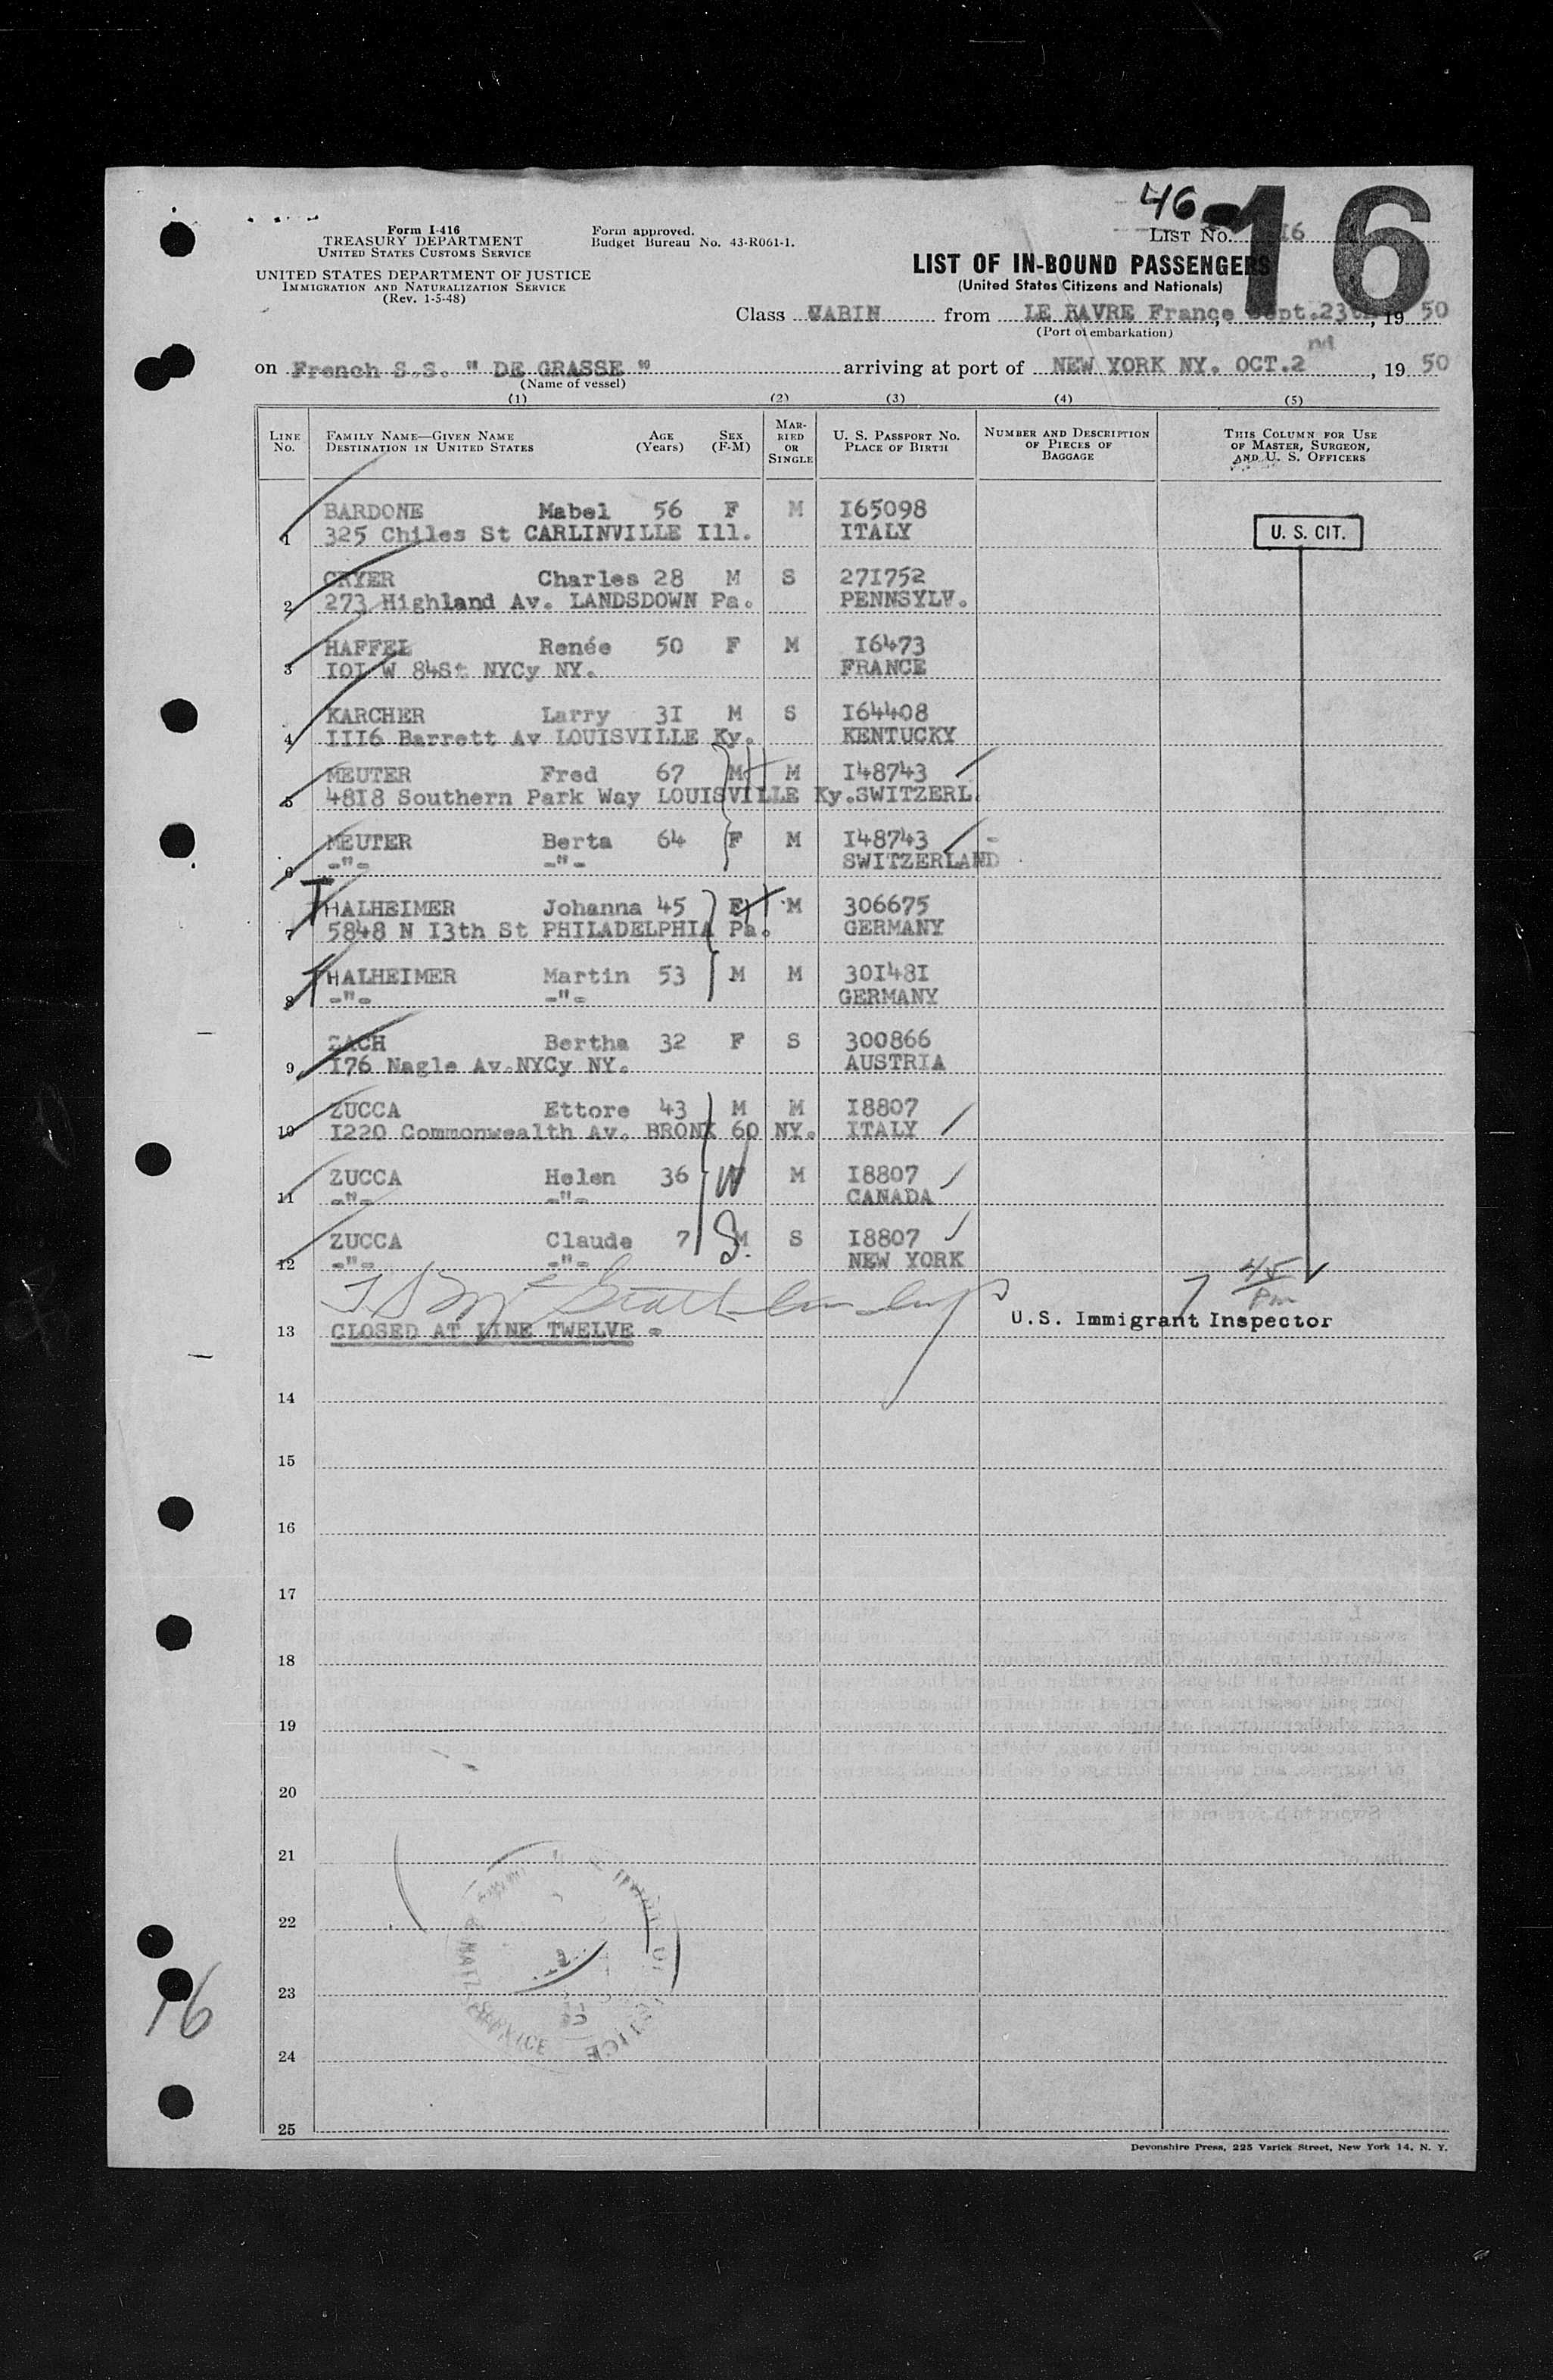 46
16
Form I-416
TREASURY DEPARTMENT
UNITED STATES CUSTOMS SERVICE
UNITED STATES DEPARTMENT OF JUSTICE
IMMIGRATION AND NATURALIZATION SERVICE
(Rev. 1-5-48)
Form approved.
Budget Bureau No. 43-R061-1.
LIST NO. 16
LIST OF IN-BOUND PASSENGERS
(United States Citizens and Nationals)
Class CABIN from LE HAVRE France, Sept.23th, 19 50
(Port of embarkation)
on French S.S. " DE GRASSE " arriving at port of NEW YORK NY. OCT.2nd, 19 50
(Name of vessel)
(1) (2) (3) (4) (5)
LINE NO. FAMILY NAME—GIVEN NAME DESTINATION IN UNITED STATES AGE (Years) SEX (F-M) MARRIED OR SINGLE U. S. PASSPORT NO. PLACE OF BIRTH NUMBER AND DESCRIPTION OF PIECES OF BAGGAGE THIS COLUMN FOR USE OF MASTER, SURGEON, AND U. S. OFFICERS
BARDONE Mabel 56 F M I65098
1 325 Chiles St CARLINVILLE Ill. ITALY U. S. CIT.
CRYER Charles 28 M S 27I752
2 273 Highland Av. LANDSDOWN Pa. PENNSYLV.
HAFFEL Renée 50 F M I6473
3 IOI W 84St NYCy NY. FRANCE
KARCHER Larry 3I M S I64408
4 III6 Barrett Av LOUISVILLE Ky. KENTUCKY
MEUTER Fred 67 M M I48743
5 48I8 Southern Park Way LOUISVILLE Ky.SWITZERL.
MEUTER Berta 64 F M I48743
6 -"- -"- SWITZERLAND
THALHEIMER Johanna 45 F M 306675
7 5848 N I3th St PHILADELPHIA Pa. GERMANY
THALHEIMER Martin 53 M M 30I48I
8 -"- -"- GERMANY
ZACH Bertha 32 F S 300866
9 I76 Nagle Av.NYCy NY. AUSTRIA
ZUCCA Ettore 43 M M I8807
10 I220 Commonwealth Av. BRONX 60 NY. ITALY
ZUCCA Helen 36 W M I8807
11 -"- -"- CANADA
ZUCCA Claude 7 M S I8807
12 -"- -"- NEW YORK
7 45 Pm
U.S. Immigrant Inspector
13 CLOSED AT LINE TWELVE -
14
15
16
17
18
19
20
21
22
23
16
24
25
Devonshire Press, 225 Varick Street, New York 14, N. Y.